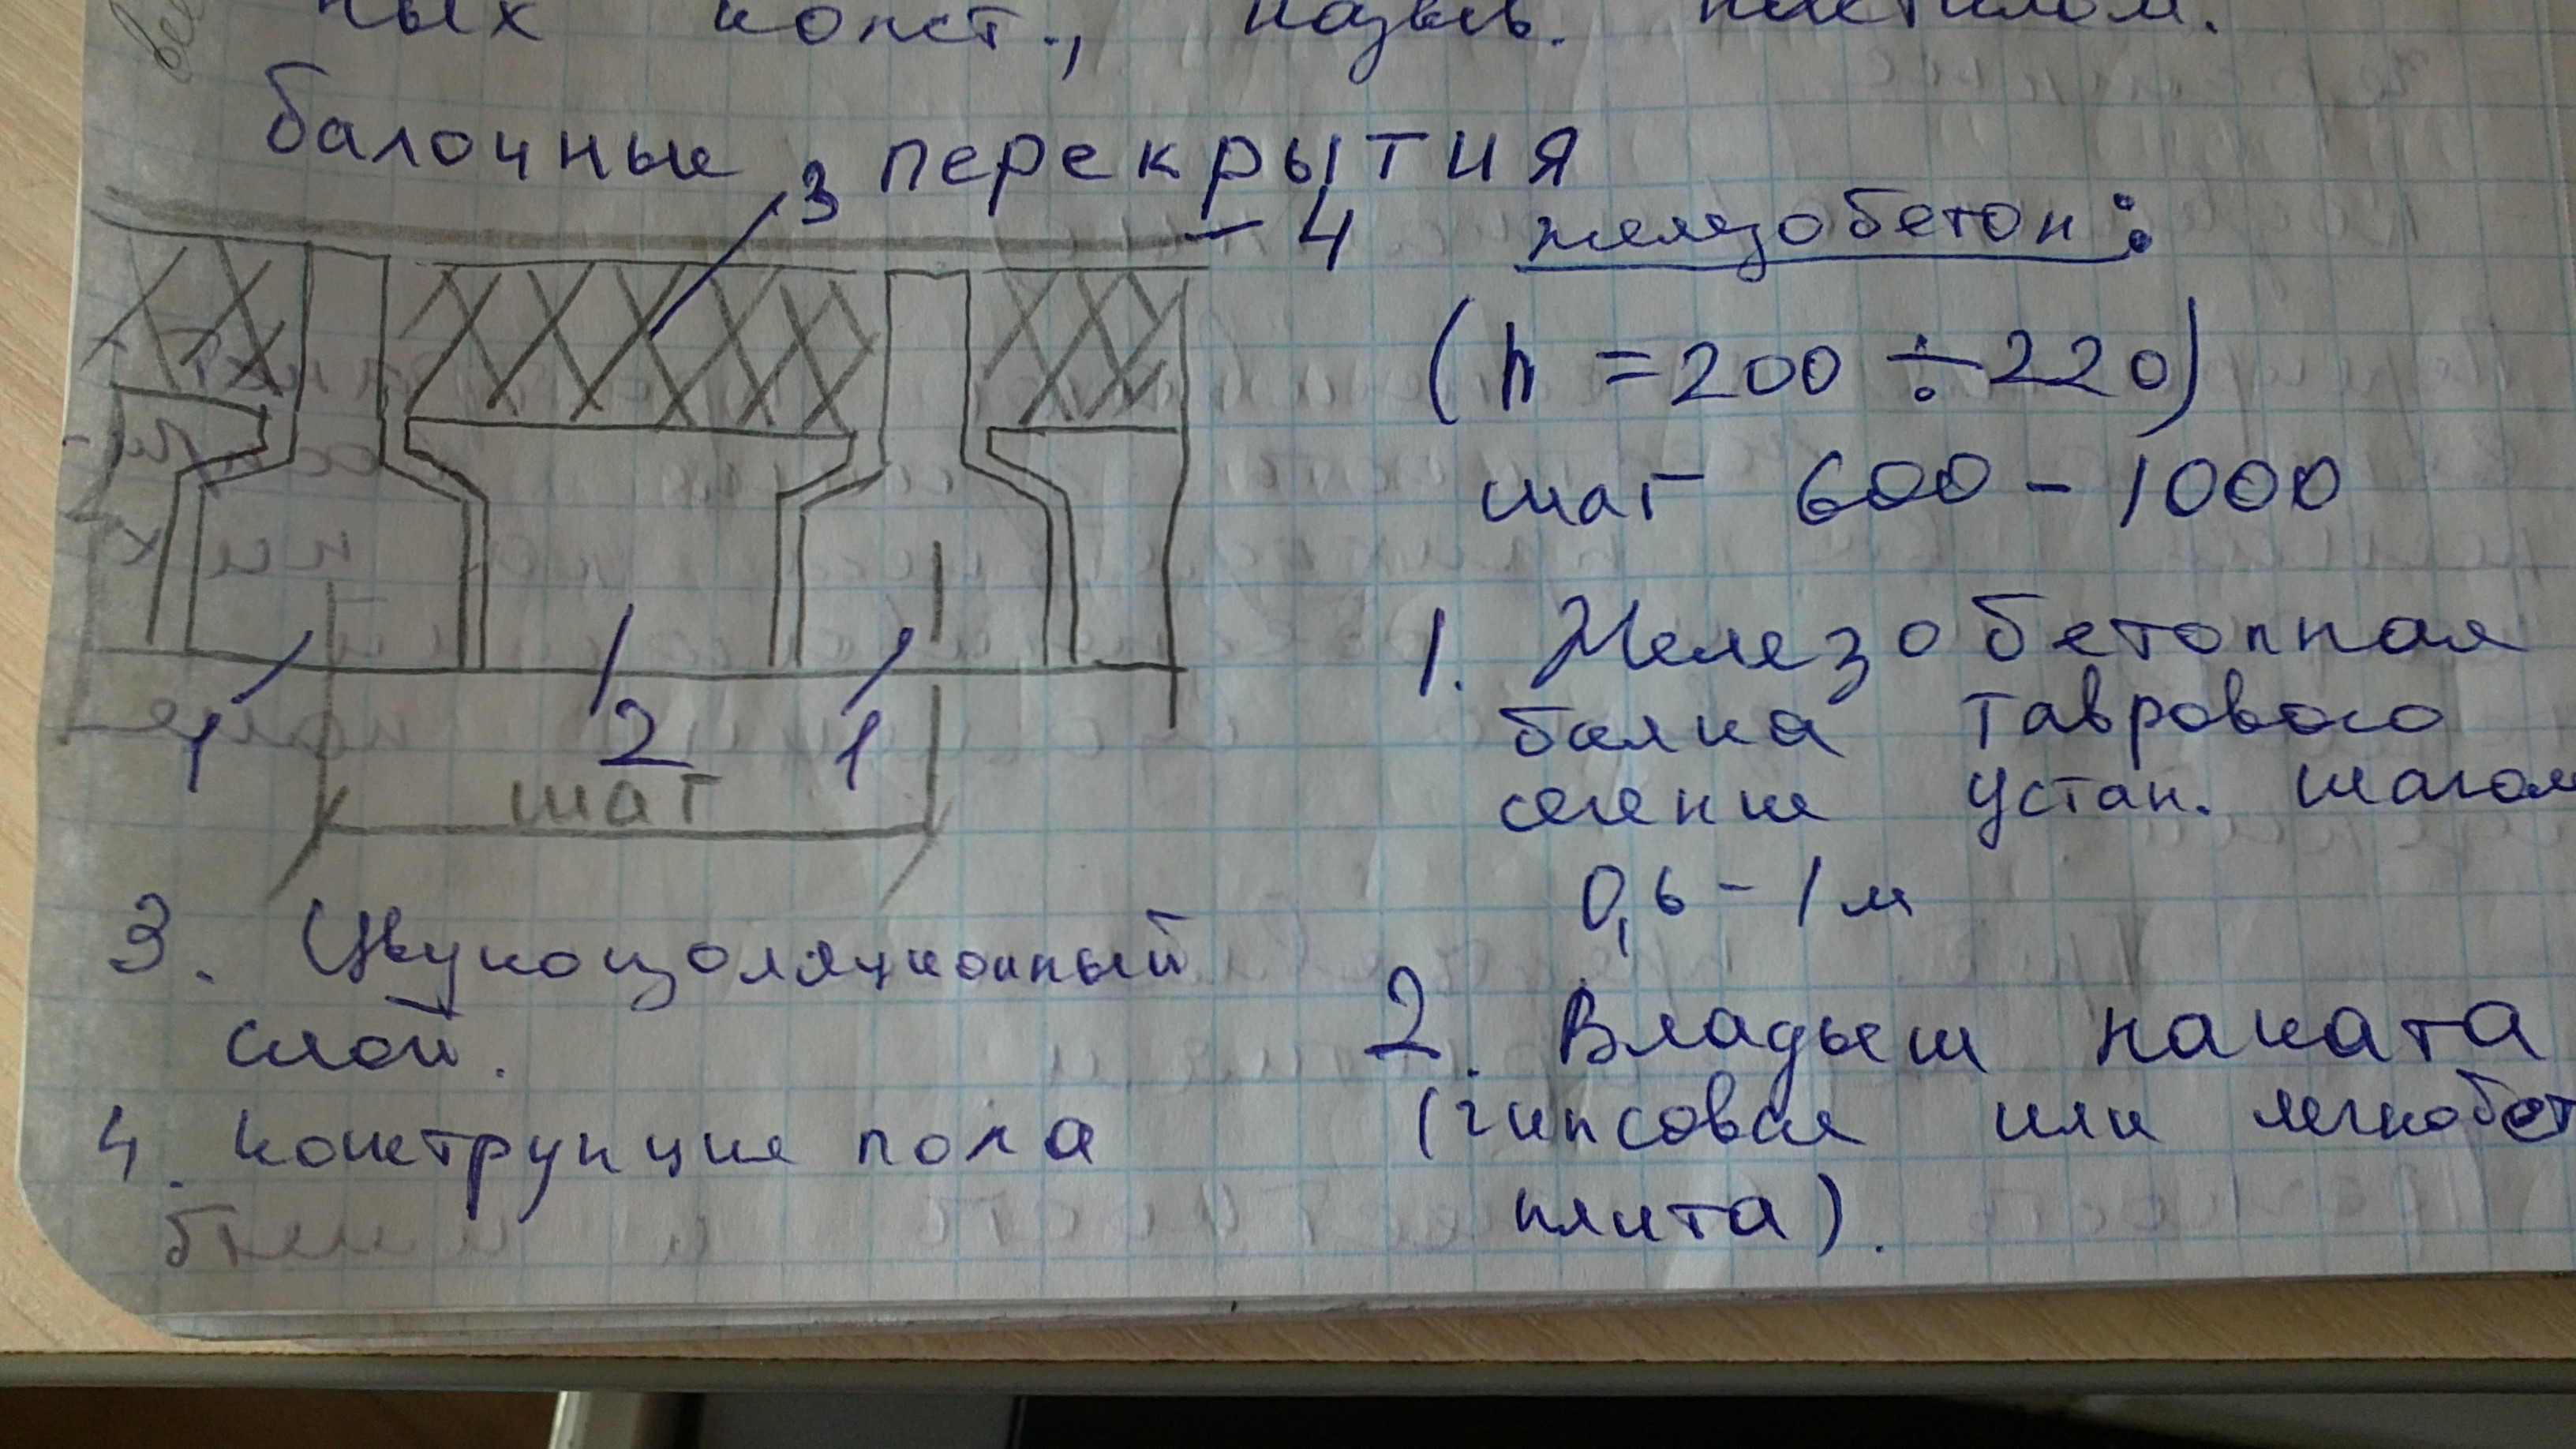 ных конст., назыв. настилом.
балочные перекрытия
3
4
железобетон:
(h = 200 ÷ 220)
шаг 600 - 1000
1
2
1
шаг
1. Железобетонная
балка таврового
сечения устан. шагом
0,6 - 1 м
2. Владыш наката
(гипсовая или легкобет
плита).
3. Звукоизоляционный
слой.
4. конструкция пола